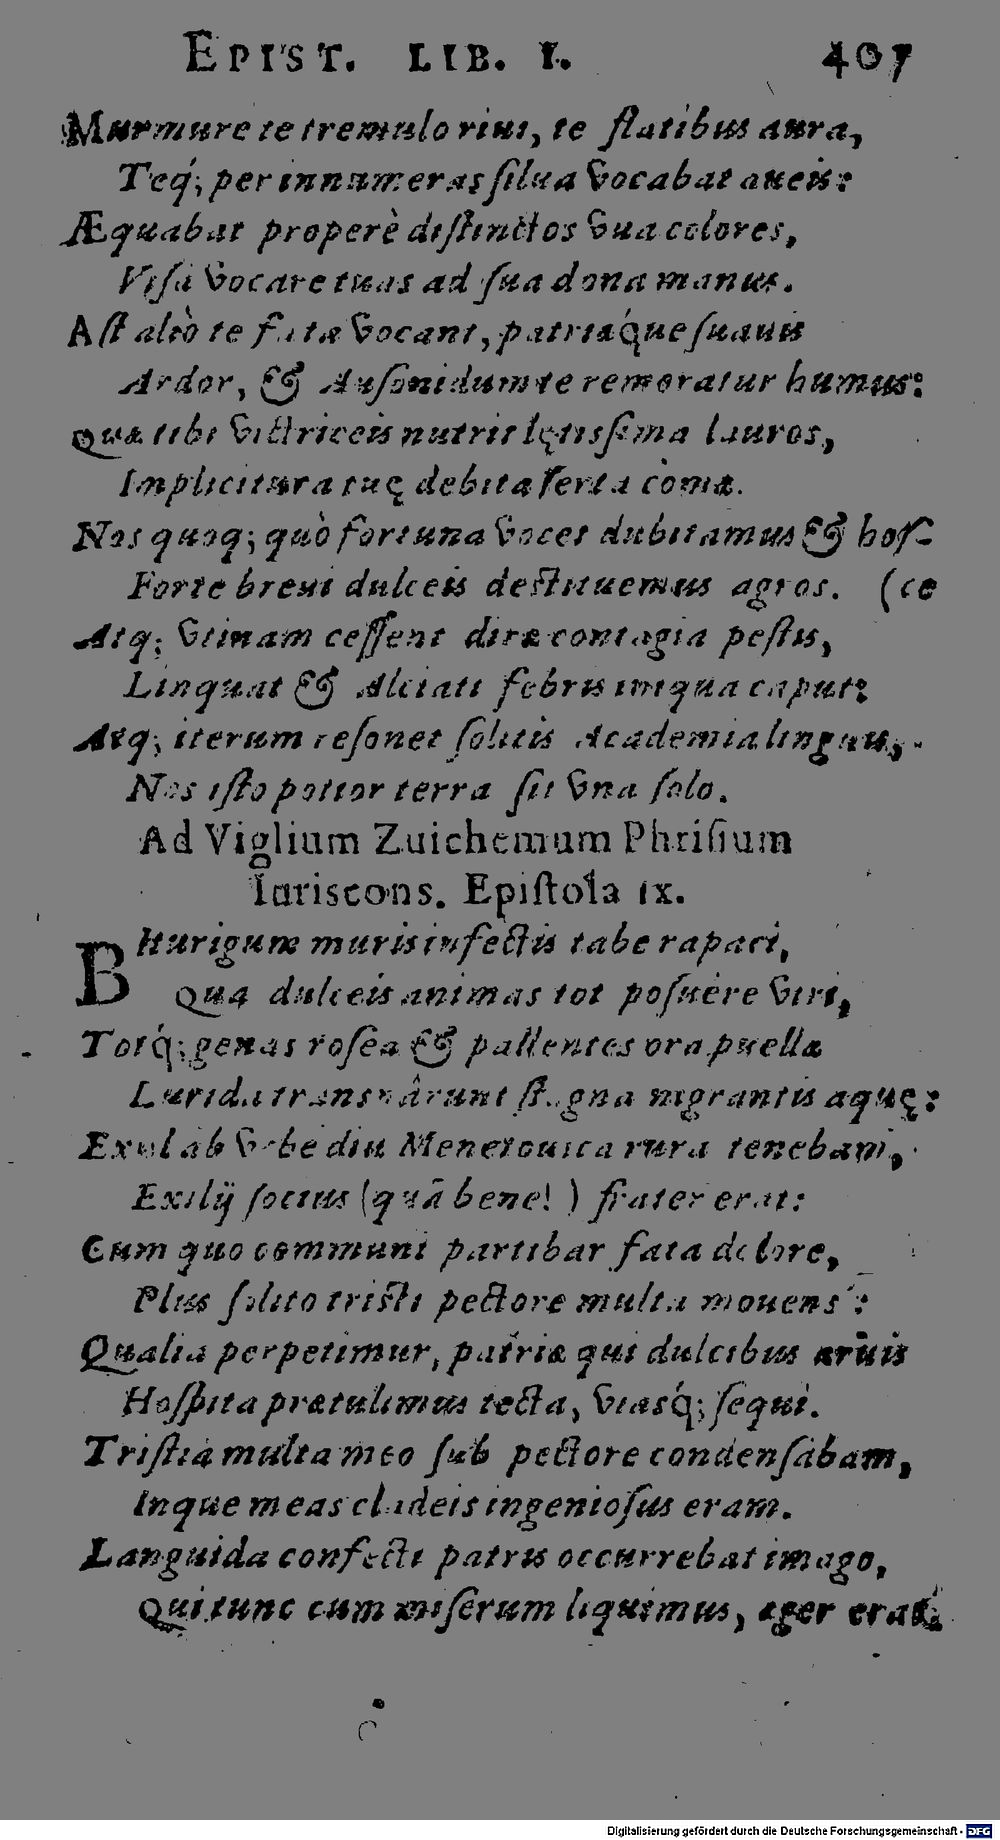 EPIST. LIB. I. 407
Murmure te tremulo rius, te flatibus aura,
Teq́; per innumeras silua vocabat aueis:
Æquabat properè distinctos vua colores,
Visa vocare tuas ad sua dona manus.
Ast aliò te fata vocant, patriæq́ue suauis
Ardor, & Ausonidum te remoratur humus:
Quæ tibi victriceis nutrit lętissima lauros,
Implicitura tuę debita serta comæ.
Nos quoq; quò fortuna vocet dubitamus & hos-
Forte breui dulceis destituemus agros. (ce
Atq; vtinam cessent diræ contagia pestis,
Linquat & Alciati febris iniqua caput:
Atq; iterum resonet solitis Academia linguis,
Nos isto potior terra sit vna solo.
Ad Viglium Zuichemum Phrisium
Iuriscons. Epistola IX.
BIturigum muris infectis tabe rapaci,
Qua dulceis animas tot posuêre viri,
Totq́; genas rosea & pallentes ora puellæ
Lurida transnârunt stagna nigrantis aquę:
Exul ab vrbe diu Menetouica rura tenebam,
Exilij socius (quã bene!) frater erat:
Cum quo communi partibar fata dolore,
Plus solito tristi pectore multa mouens:
Qualia perpetimur, patriæ qui dulcibus aruis
Hospita prætulimus tecta, viasq́; sequi.
Tristia multa meo sub pectore condensabam,
Inque meas cladeis ingeniosus eram.
Languida confecti patris occurrebat imago,
Qui tunc cum miserum liquimus, æger erat.
Digitalisierung gefördert durch die Deutsche Forschungsgemeinschaft - DFG